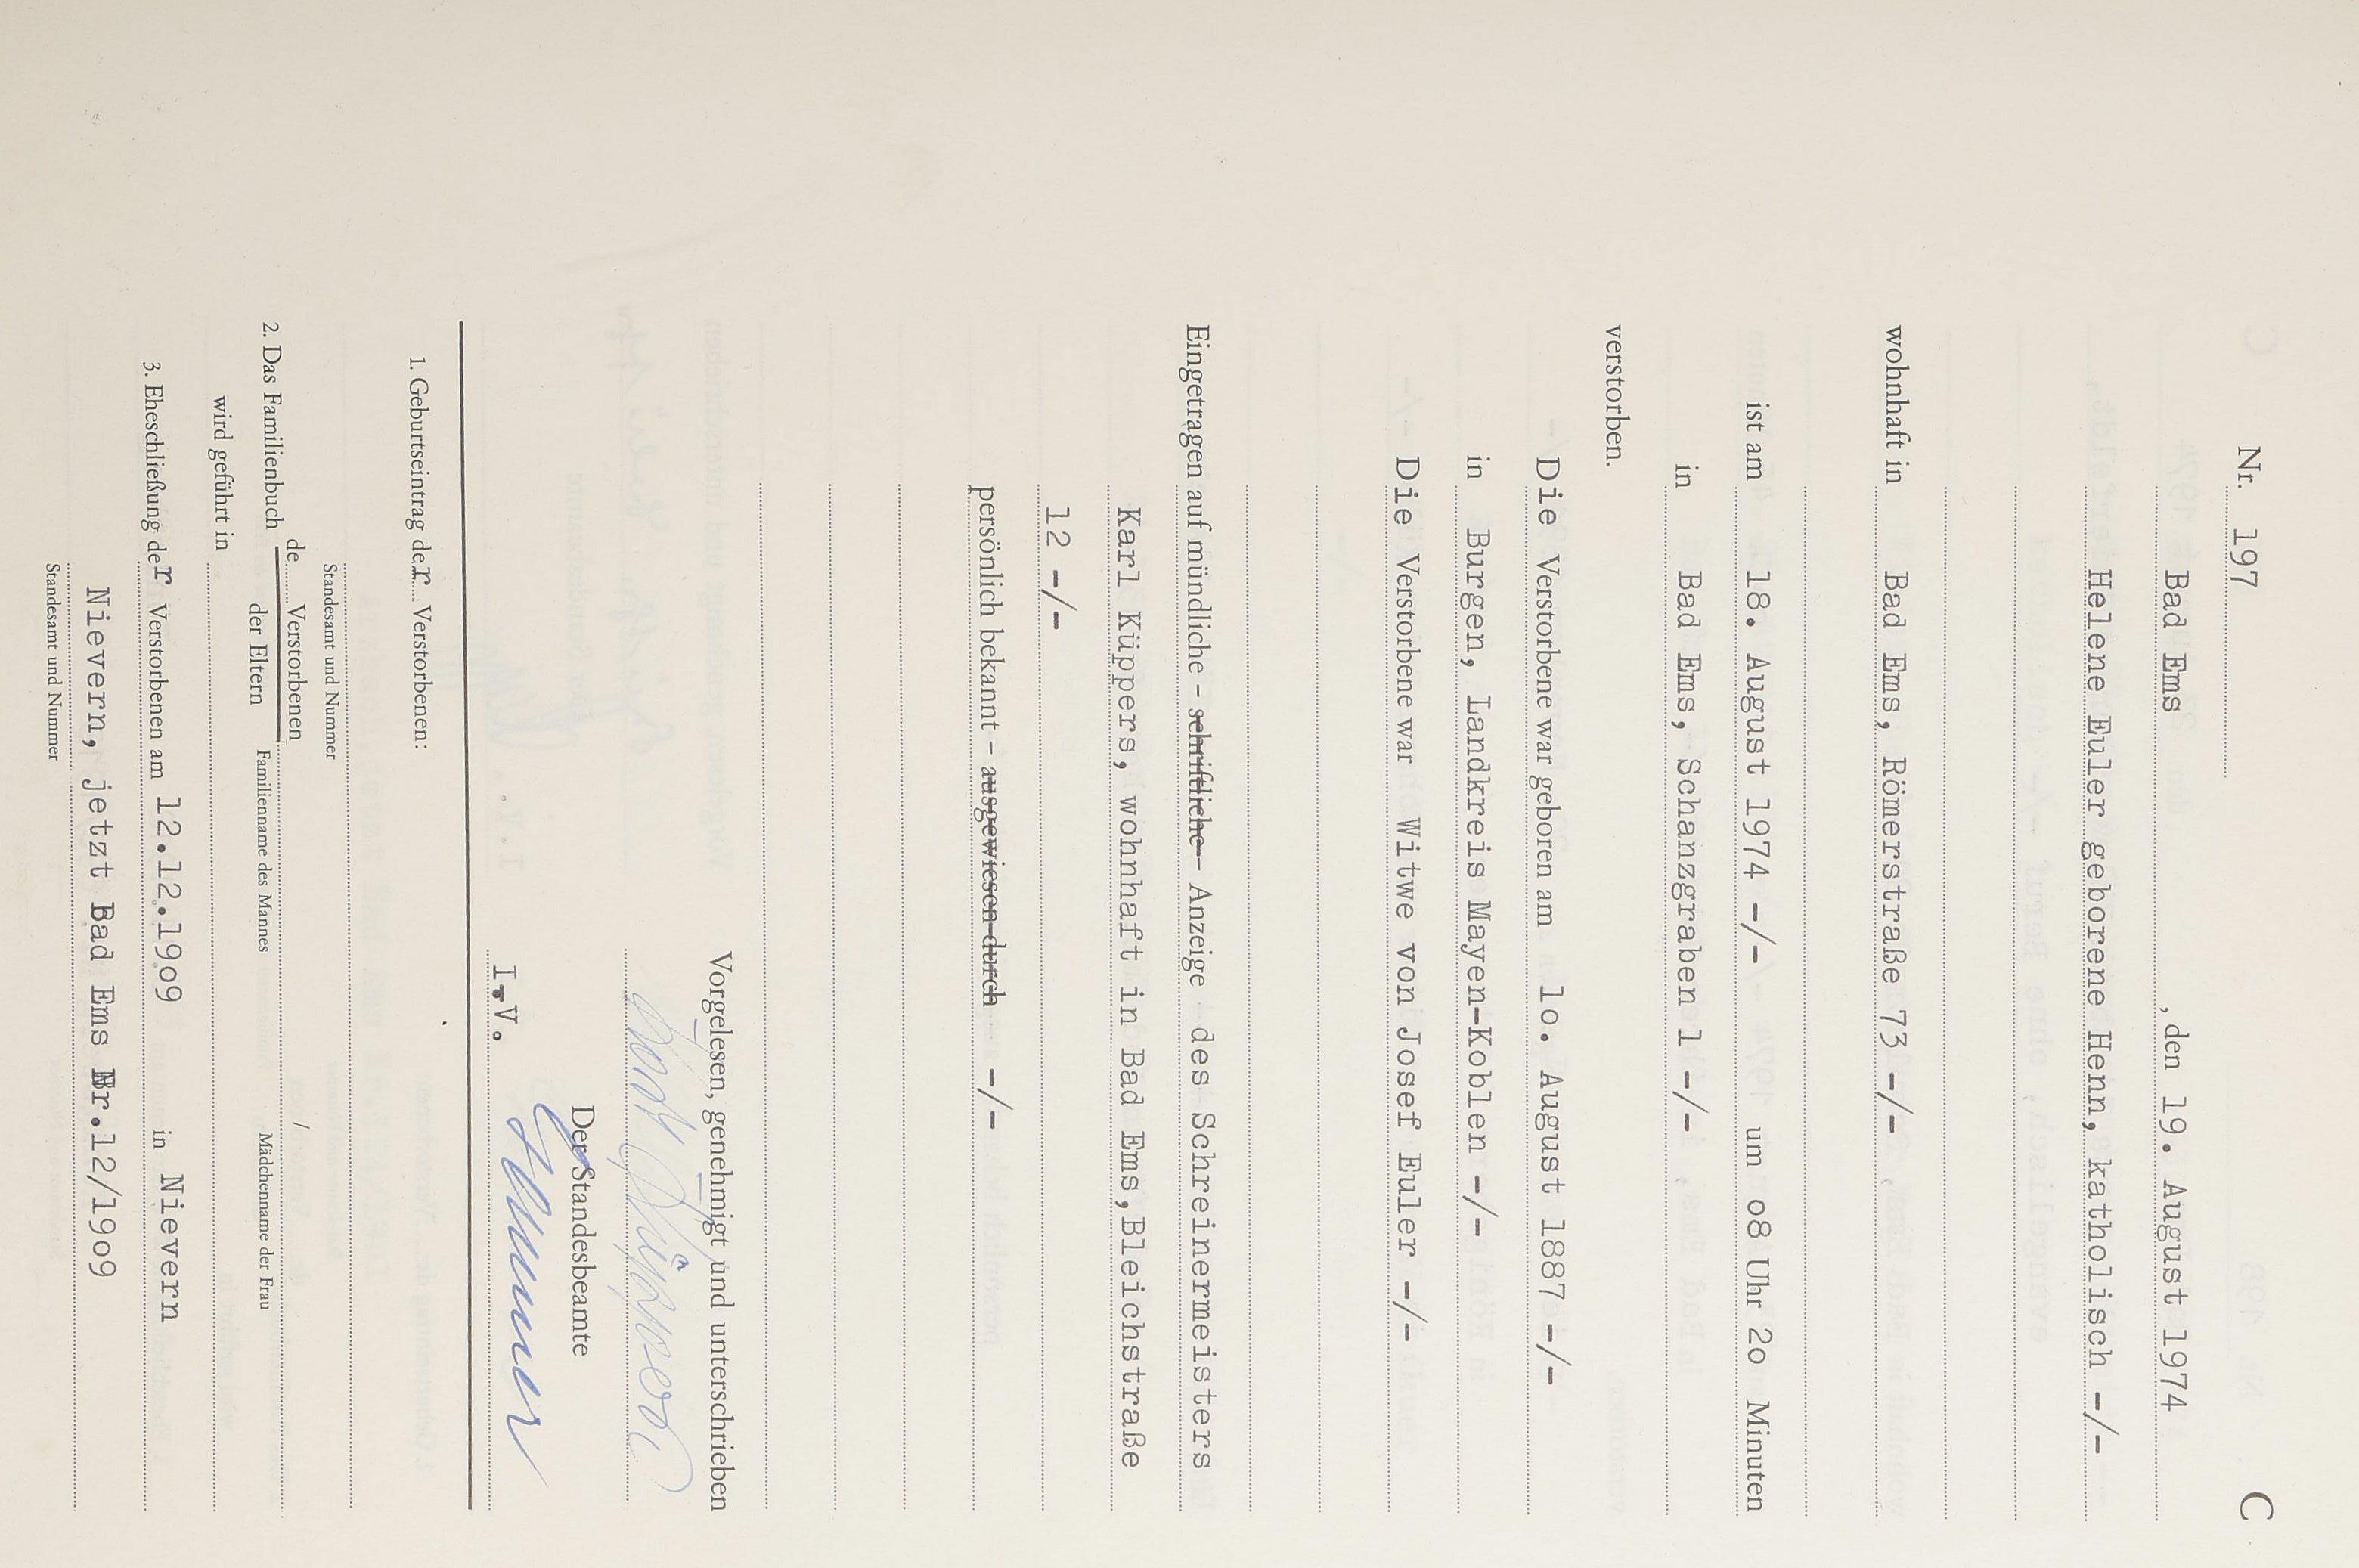 C
Nr. 197
Bad Ems , den 19. August 1974
Helene Euler geborene Henn, katholisch -/-
wohnhaft in Bad Ems, Römerstraße 73 -/-
ist am 18. August 1974 -/- um o8 Uhr 2o Minuten
in Bad Ems, Schanzgraben 1 -/-
verstorben.
Die Verstorbene war geboren am 1o. August 1887 -/-
in Burgen, Landkreis Mayen-Koblen -/-
Die Verstorbene war Witwe von Josef Euler -/-
Eingetragen auf mündliche - schriftliche - Anzeige des Schreinermeisters
Karl Küppers, wohnhaft in Bad Ems,Bleichstraße
12 -/-
persönlich bekannt - ausgewiesen durch -/-
Vorgelesen, genehmigt und unterschrieben
Küppers
Der Standesbeamte
I.V.
1. Geburtseintrag der Verstorbenen:
Standesamt und Nummer
2. Das Familienbuch de Verstorbenen /
der Eltern Familienname des Mannes Mädchenname der Frau
wird geführt in
3. Eheschließung der Verstorbenen am 12.12.19o9 in Nievern
Nievern, jetzt Bad Ems Nr.12/19o9
Standesamt und Nummer